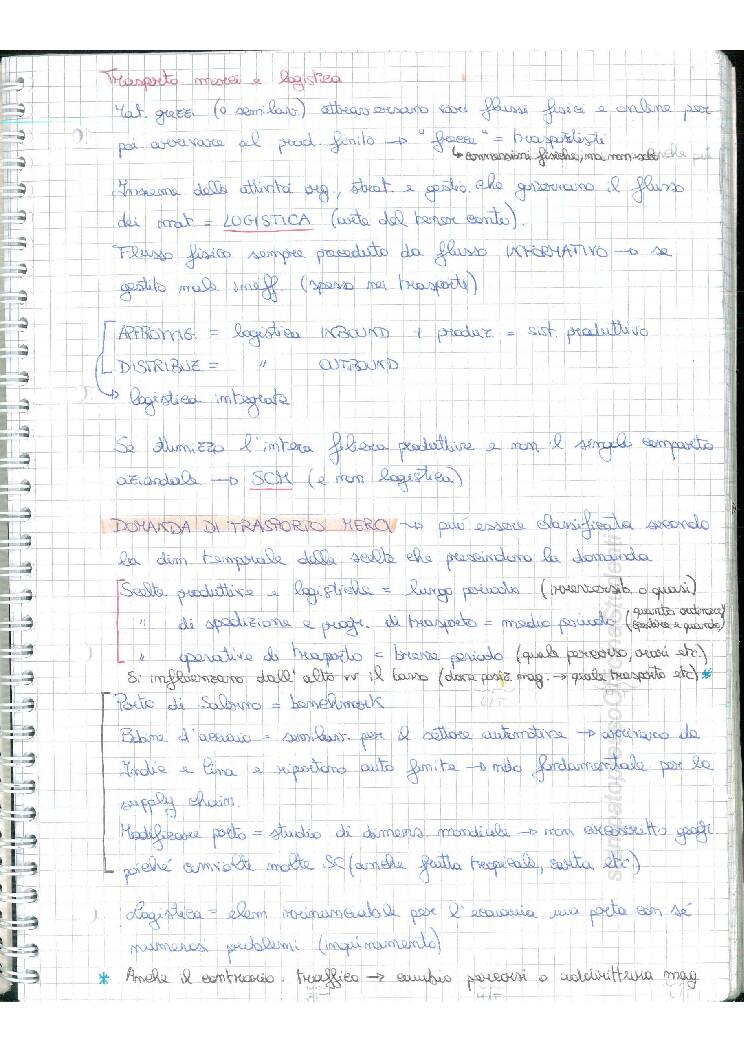 Trasporto merci e logistica
Mat. grezzi (o semilav.) attraversano vari flussi fisici e online per
poi arrivare al prod. finito → "frecce" = trasportisti
↳ connessioni fisiche, ma non solo
Insieme delle attività org., strat. e gestio. che governano il flusso
dei mat. = LOGISTICA (arte del tener conto).
Flusso fisico sempre preceduto da flusso INFORMATIVO → se
gestito male ineff. (spesso nei trasporti)
APPROVVIG. = logistica INBOUND + produz. = sist. produttivo
DISTRIBUZ = " OUTBOUND
↳ logistica integrata
Se ottimizzo l'intera filiera produttiva e non il singolo comparto
aziendale → SCM (e non logistica)
DOMANDA DI TRASPORTO MERCI → può essere classificata secondo
la dim. temporale delle scelte che prescindono la domanda
Scelte produttive e logistiche = lungo periodo (irreversib. o quasi)
" di spedizione e progr. di trasporto = medio periodo (quanto ordinare, spedire e quando)
" operative di trasporto = breve periodo (quale percorso, orari etc)
Si influenzano dall'alto vs il basso (dove posiz. mag. → quale trasporto etc) *
Porto di Salerno = benchmark
Bobine d'acciaio = semilav. per il settore automotive → arrivano da
India e Cina e riportano auto finite → nodo fondamentale per la
supply chain.
Modificare porto = studio di dimens. mondiale → non circoscritto geogr.
poiché coinvolte molte SC (anche frutta tropicale, carta, etc)
Logistica = elem. irrinunciabile per l'economia ma porta con sé
numerosi problemi (inquinamento)
* Anche il contrario. traffico → cambio percorsi o addirittura mag.